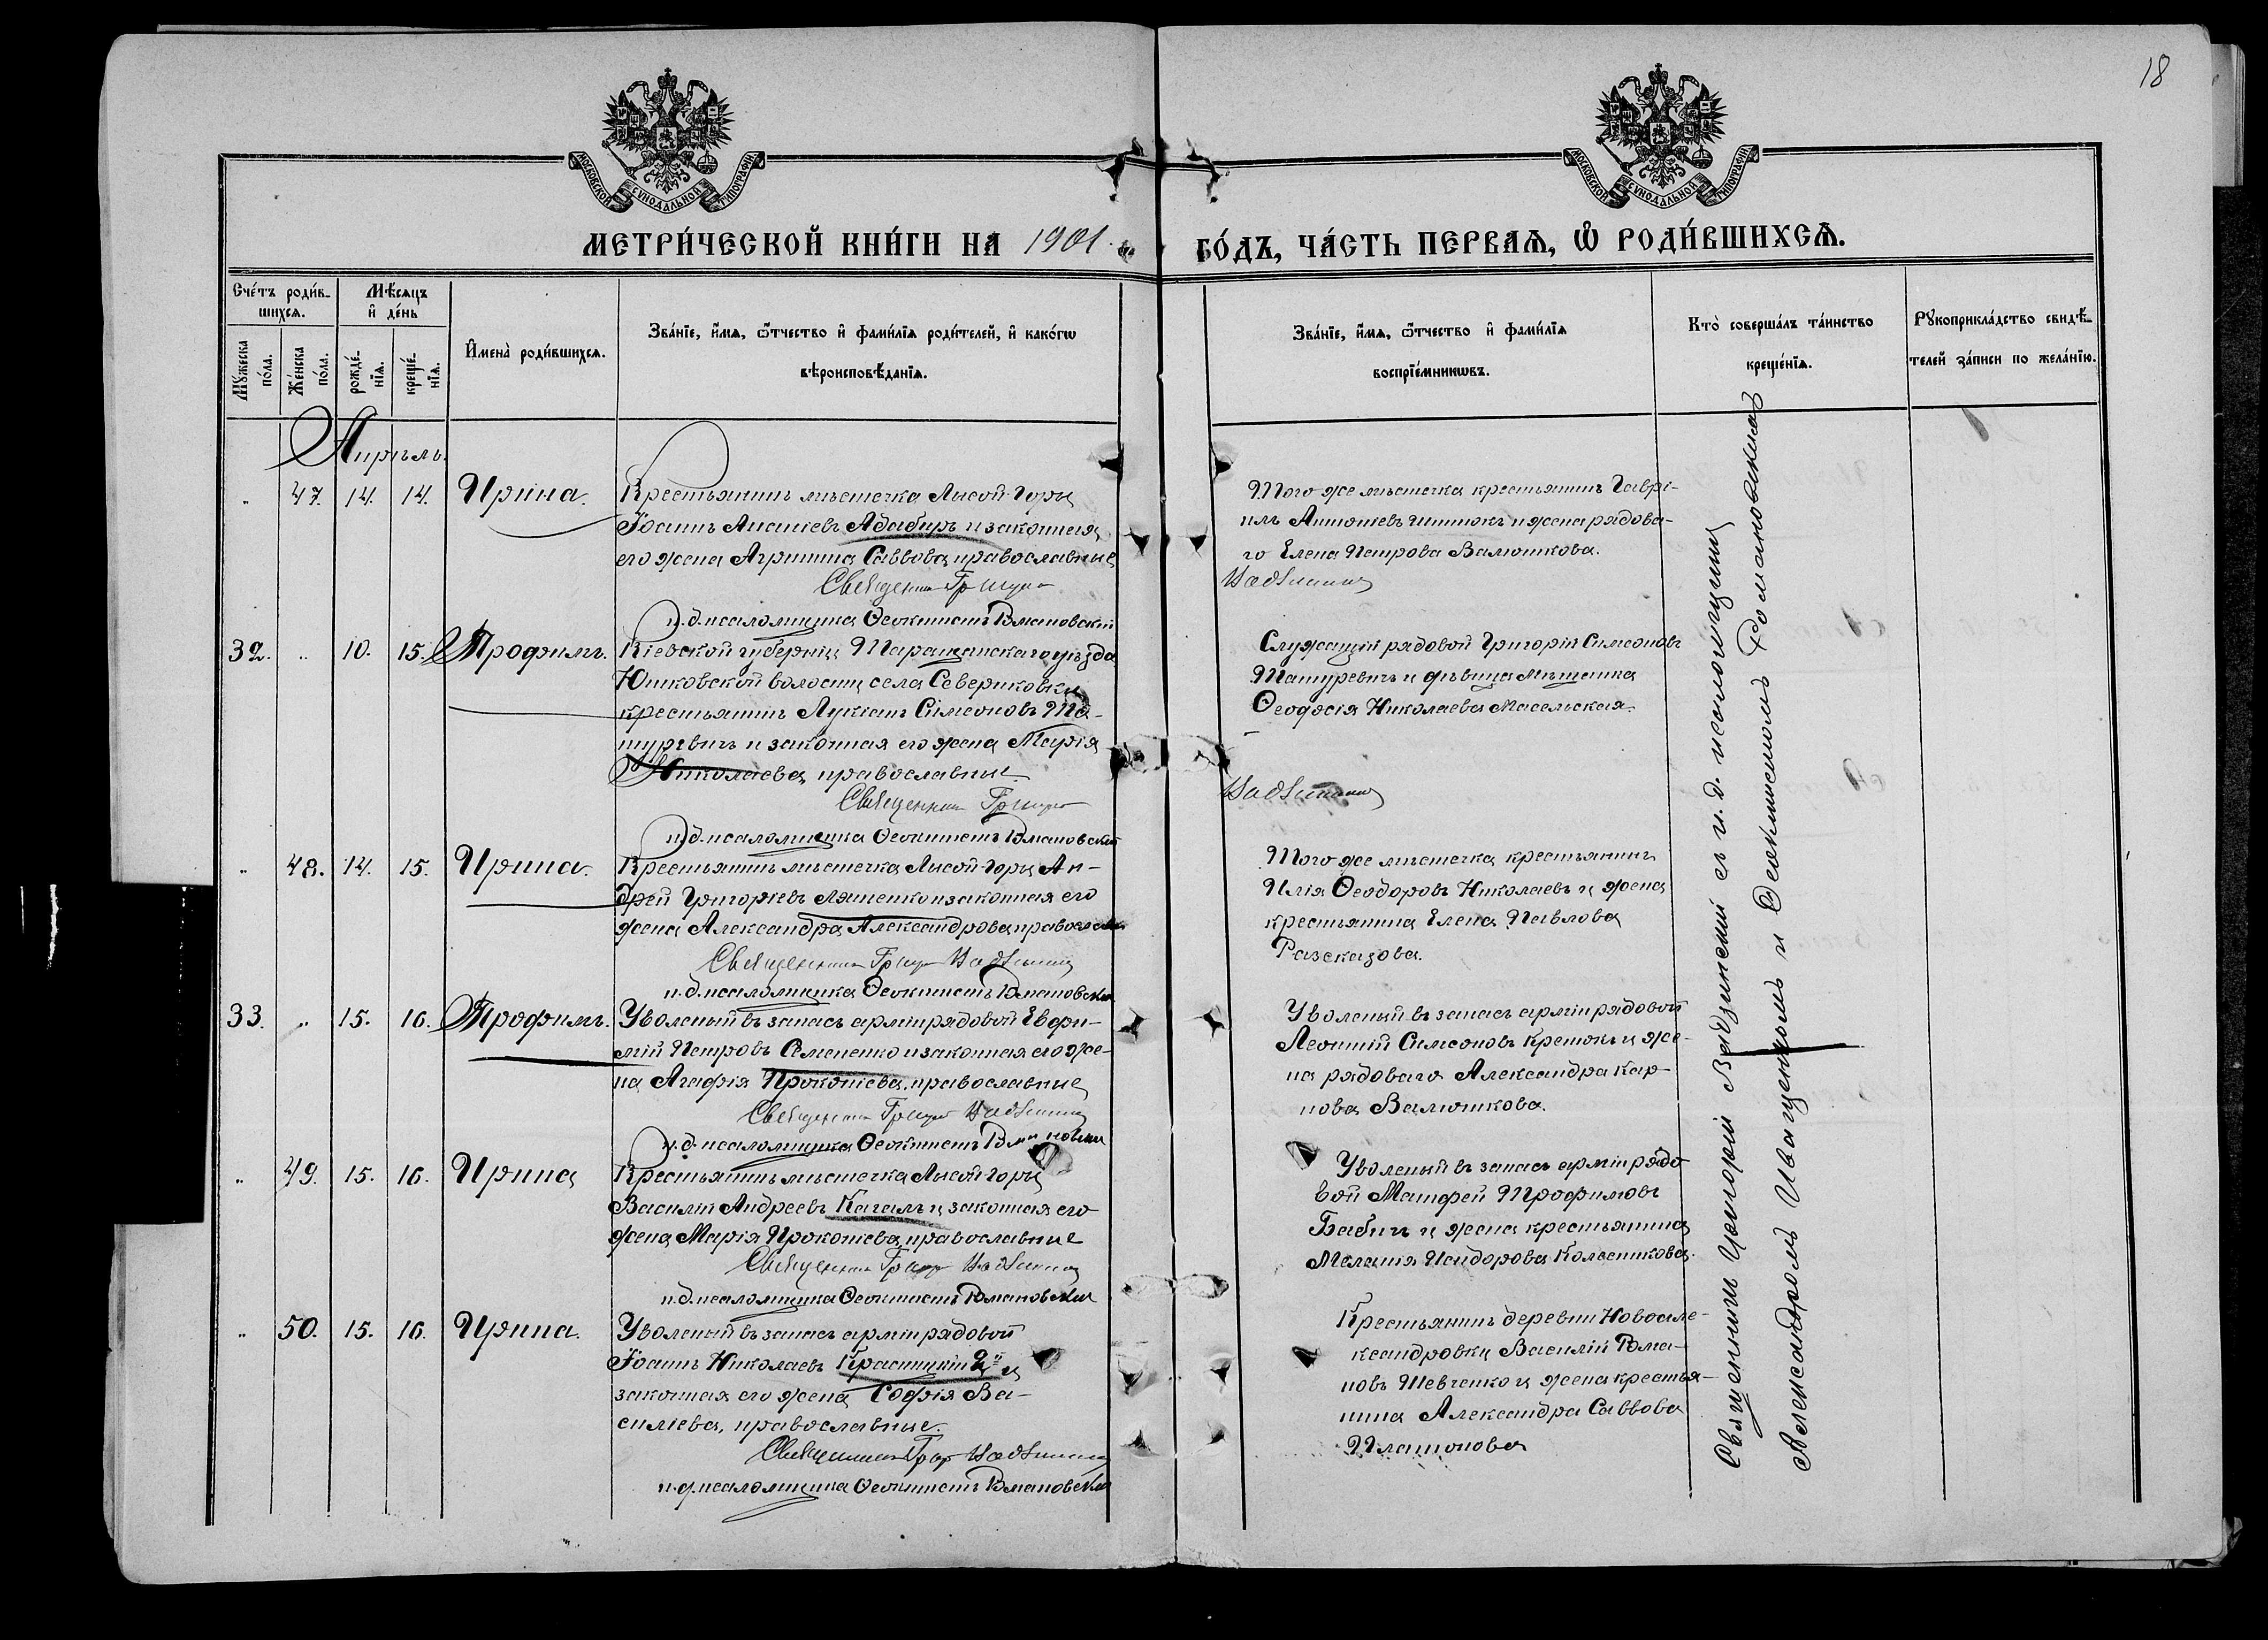 18
МОСКОВСКОЙ СУНОДАЛЬНОЙ ТИПОГРАФИИ
МОСКОВСКОЙ СУНОДАЛЬНОЙ ТИПОГРАФИИ
МЕТРИ́ЧЕСКОЙ КНИ́ГИ НА 1901
ГО́ДЪ, ЧА́СТЬ ПЕРВАѦ, Ѡ҆ РОДИ́ВШИХСѦ.
Сче́тъ роди́в-
шихсѧ.
Мѣсѧцъ
и҆ де́нь
Мꙋ́жеска
по́ла.
Же́нска
по́ла.
рожде́-
нїѧ.
креще́-
нїѧ.
И҆мена̀ роди́вшихсѧ.
Зва́нїе, и҆́мѧ, ѻ҆́тчество и҆ фами́лїѧ роди́телей, и҆ како́гѡ
вѣроисповѣ́данїѧ.
Зва́нїе, и҆́мѧ, ѻ҆́тчество и҆ фами́лїѧ
воспрїе́мникѡвъ.
Кто̀ соверша́лъ та́инство
креще́нїѧ.
Рꙋкоприкла́дство свидѣ́-
телей за́писи по жела́нїю.
Апрѣль.
" 47. 14. 14. Ирина.
Крестьянинъ мѣстечка Лысой-Горы
Іоаннъ Ананіевъ Адабиръ и законная
его жена Агрипина Саввова, православные
Священникъ
и.д. псаломщика Ѳеоктистъ Романовскій
Того же мѣстечка крестьянинъ Гаврі-
илъ Антоніевъ и жена рядова-
го Елена Петрова Валюшкова.
32. " 10. 15. Трофимъ.
Кіевской губерніи Таращанскаго уѣзда
Юшковской волости села Севериковки
крестьянинъ Лукіанъ Симеоновъ Ма-
шуревичъ и законная его жена Марія
Николаева, православные.
Священникъ
и.д. псаломщика Ѳеоктистъ Романовскій
Служащій рядовой Григорій Симеоновъ
Машуревичъ и дѣвица мѣщанка
Ѳеодосія Николаева Масельская.
" 48. 14. 15. Ирина.
Крестьянинъ мѣстечка Лысой-Горы Ан-
дрей Григоріевъ Ляшенко и законная его
жена Александра Александрова, православные
Священникъ
и.д. псаломщика Ѳеоктистъ Романовскій
Того же мѣстечка крестьянинъ
Илія Ѳеодоровъ Николаевъ и жена
крестьянина Елена Павлова
Разсказова.
33. " 15. 16. Трофимъ.
Уволеный въ запасъ арміи рядовой Евфи-
мій Петровъ Семененко и законная его же-
на Агафія Прокопіева, православные
Священникъ
и.д. псаломщика Ѳеоктистъ Романовскій
Уволеный въ запасъ арміи рядовой
Леонтій Симеоновъ Кретокъ и же-
на рядоваго Александра Кар-
пова Валюшкова.
" 49. 15. 16. Ирина
Крестьянинъ мѣстечка Лысой-Горы
Василій Андреевъ Кагалъ и законная его
жена Марія Прокопіева, православные
Священникъ
и.д. псаломщика Ѳеоктистъ Романовскій
Уволеный въ запасъ арміи рядо-
вой Матфей Трофимовъ
Бабичъ и жена крестьянина
Меланія Исидорова Колесникова.
" 50. 15. 16. Ирина.
Уволеный въ запасъ арміи рядовой
Іоаннъ Николаевъ Красицкій 2й и
законная его жена Софія Ва-
силіева, православные.
Священникъ
и.д. псаломщика Ѳеоктистъ Романовскій
Крестьянинъ деревни Новоале-
ксандровки Василій Рома-
новъ Шевченко и жена крестья-
нина Александра Саввова
Платонова
Священникъ Григорій съ и.д. псаломщика
Александромъ Иващенкомъ и Ѳеоктистомъ Романовскимъ